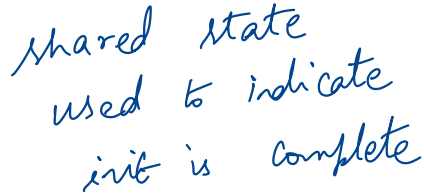 shared state
used to indicate
init is complete